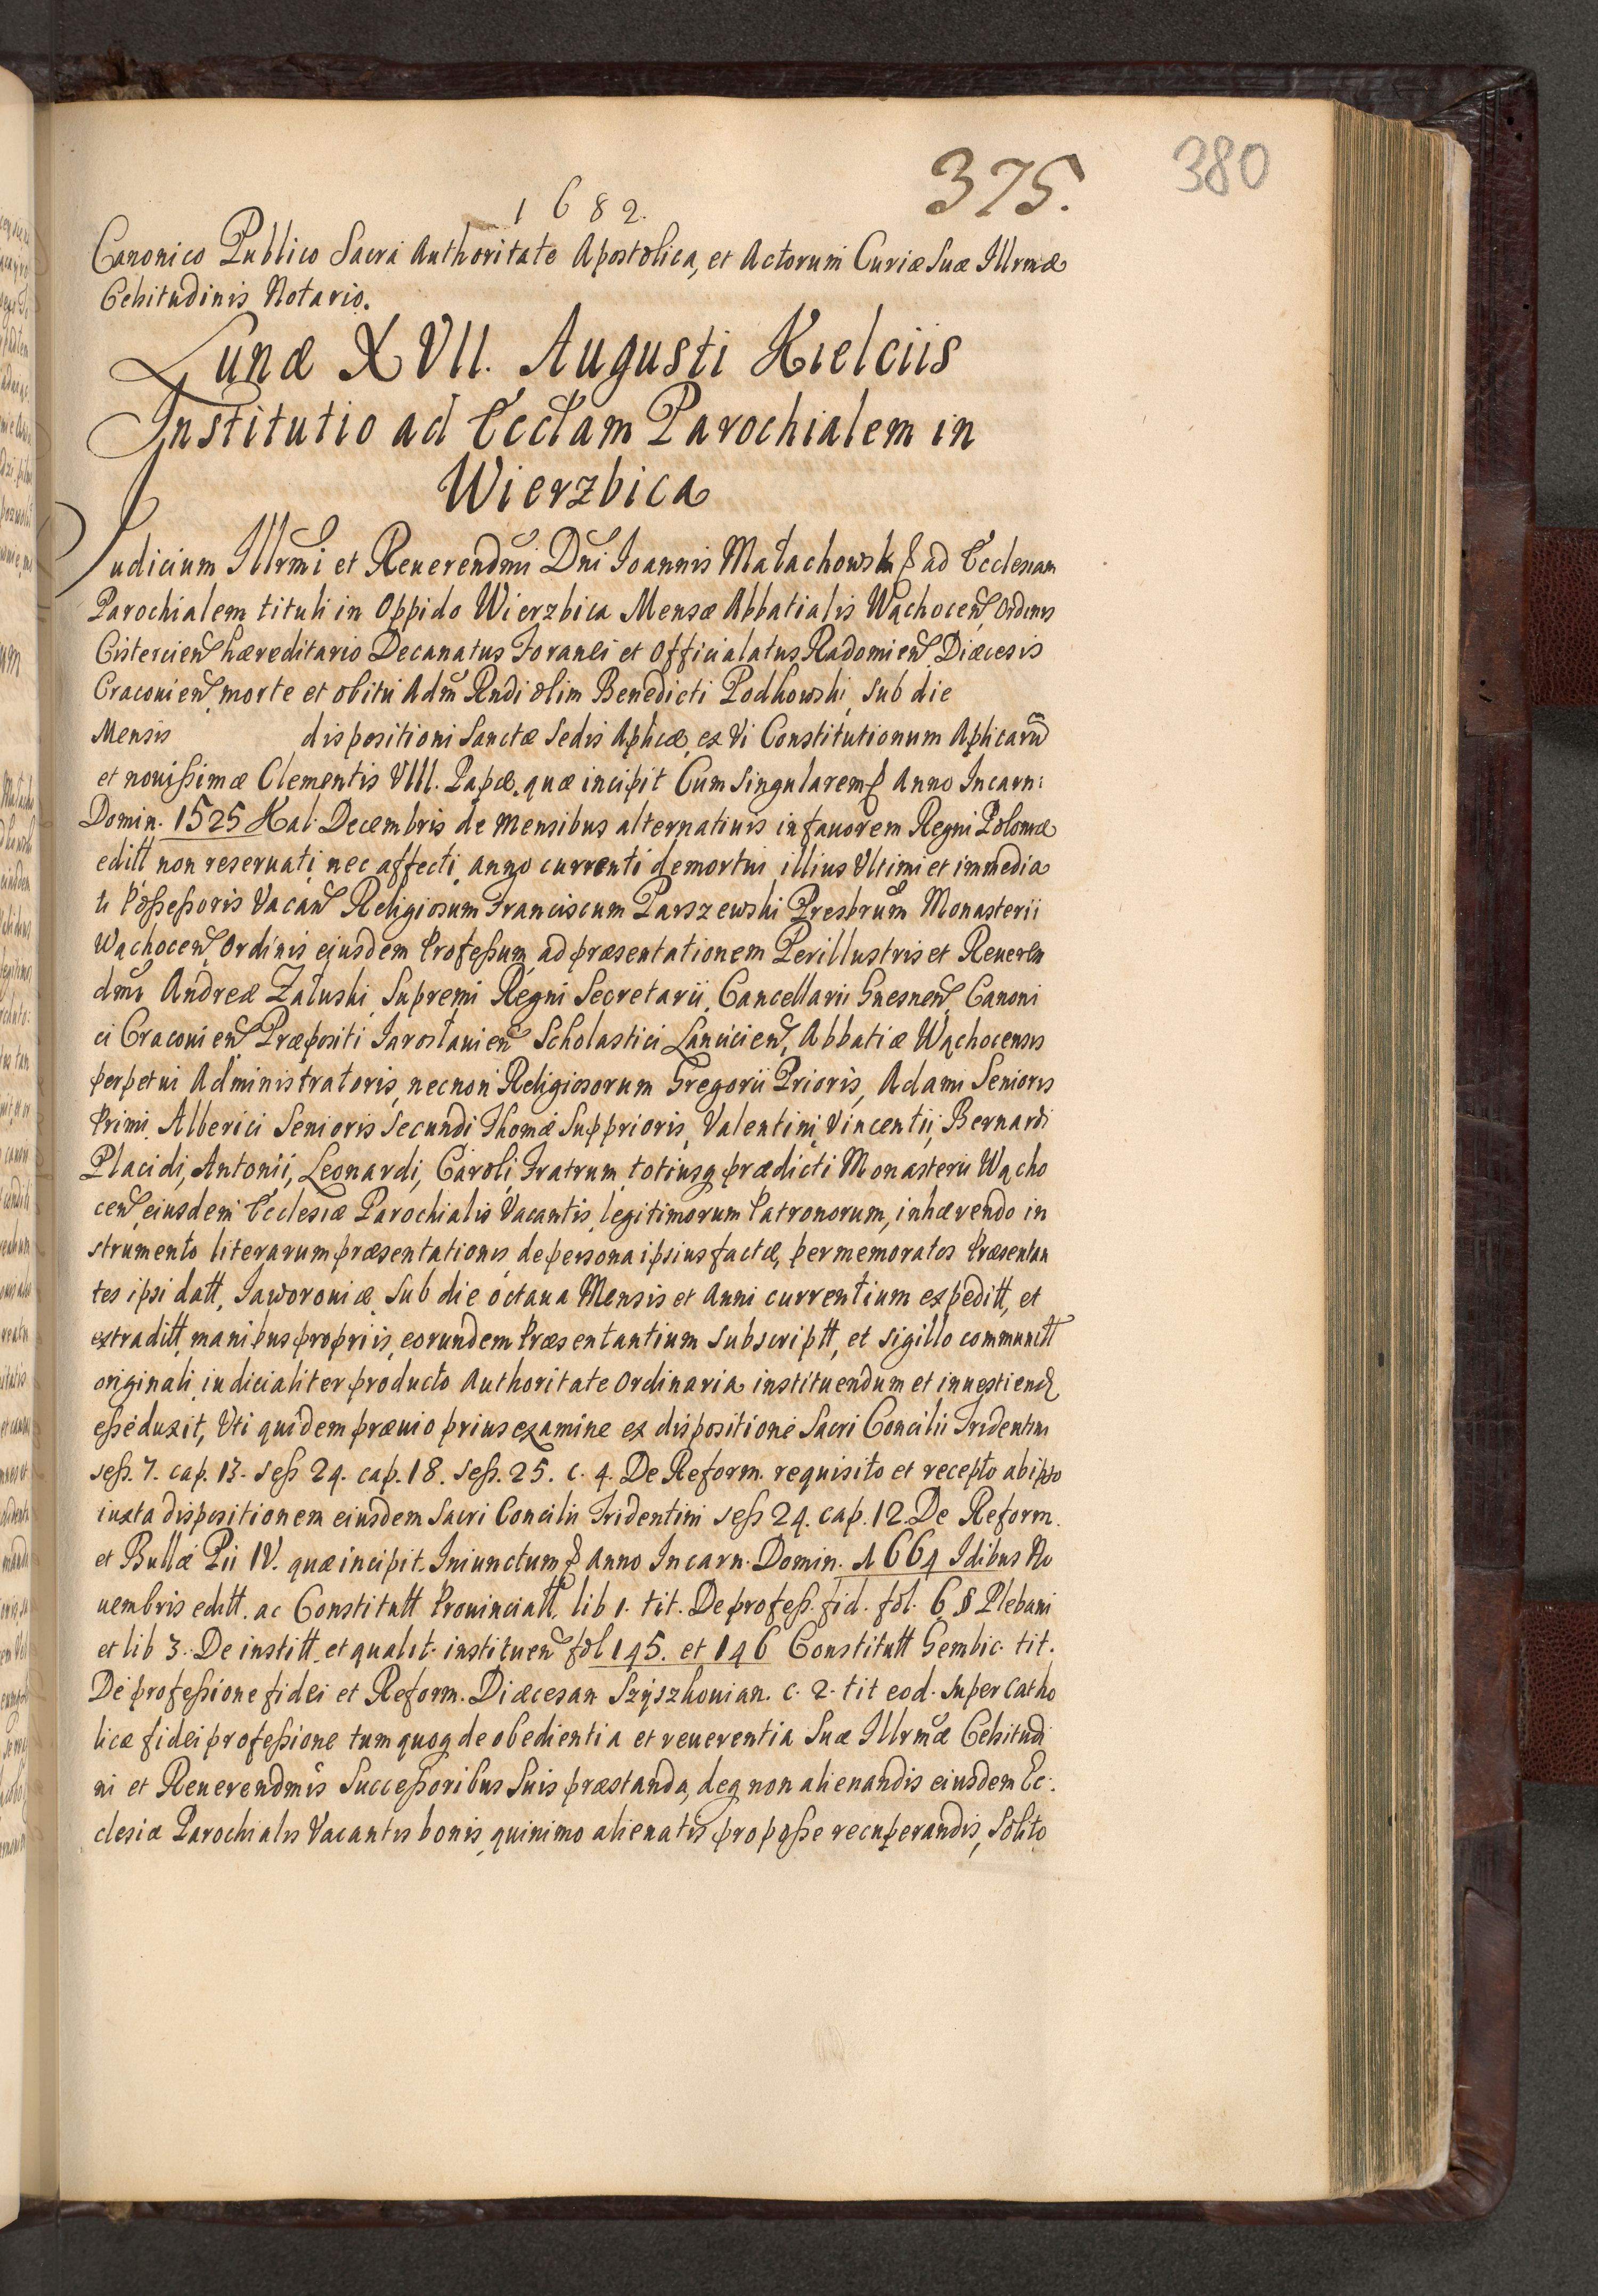 380
375.
1682.
Canonico Publico Sacra Authoritate Apostolica, et Actorum Curiæ Suæ Illrmæ
Celsitudinis Notario.
Lunæ XVII. Augusti Kielciis
Institutio ad Eccłam Parochialem in
Wierzbica
Judicium Illrmi et Reuerendmi Dni Joannis Małachowski ad Ecclesiam
Parochialem tituli in Oppido Wierzbica Mensæ Abbatialis Wąchocen Ordinis
Cistercien hæreditario Decanatus Foranei et Officialatus Radomien Diæcesis
Cracouien, morte et obitu Adm Rndi olim Benedicti Podkowski, sub die
Mensis dispositioni Sanctæ Sedis Aplicæ, ex Vi Constitutionum Aplicarum
et nouißimæ Clementis VIII. Papæ, quæ incipit Cum Singularem Anno Incarn:
Domin. 1525 Kal. Decembris de Mensibus alternatiuis in fauorem Regni Poloniæ
editt non reseruati, nec affecti, anno currenti demortui illius Vltimi et immedia
ti Poßeßoris Vacan Religiosum Franciscum Parszewski Presbrum Monasterii
Wąchocen, Ordinis eiusdem Profeßum, ad præsentationem Perillustris et Reueren
dmi Andreæ Załuski, Supremi Regni Secretarii, Cancellarii Gnesnen, Canoni
ci Cracouien, Præpositi Jarosłauien Scholastici Lancicien, Abbatiæ Wąchocensis
perpetui Administratoris, necnon Religiosorum Gregorii Prioris, Adami Senioris
Primi, Alberici Senioris Secundi Thomæ Supprioris, Valentini, Vincentii, Bernardi
Placidi, Antonii, Leonardi, Caroli, Fratrum totiusq prædicti Monasterii Wącho
cen, eiusdem Ecclesiæ Parochialis Vacantis, legitimorum Patronorum, inhærendo in
strumento literarum præsentationis, de persona ipsius factæ, per memoratos Præsentan
tes ipsi datt, Jaworouiæ sub die octaua Mensis et Anni currentium expeditt, et
extraditt, manibus propriis, eorundem Præsentantium subscriptt, et sigillo communitt
originali, iudicialiter producto Authoritate Ordinaria instituendum et inuestiend
eße duxit, Vti quidem præuio prius examine ex dispositione Sacri Concilii Tridentini
seß. 7. cap. 13. seß 24. cap. 18. seß. 25. c. 4. De Reform. requisito et recepto ab ipso
iuxta dispositionem eiusdem Sacri Concilii Tridentini seß 24. cap. 12 De Reform.
et Bullæ Pii IV. quæ incipit Iniunctum Anno Incarn. Domin. 1664 Idibus No
uembris editt. ac Constitutt Prouinciatt, lib 1. tit. De profeß. fid. fol. 6 § Plebani
et lib 3. De institt. et qualit. instituen fol 145. et 146 Constitutt Gembic. tit.
De profeßione fidei et Reform. Diæcesan Szyszkouian. c. 2. tit eod. super Catho
licæ fidei profeßione tum quoq de obedientia et reuerentia Suæ Illrmæ Celsitudi
ni et Reuerendmis Succeßoribus Suis præstanda, deq non alienandis eiusdem Ec:
clesiæ Parochialis Vacantis bonis, quinimo alienatis pro poße recuperandis, solito